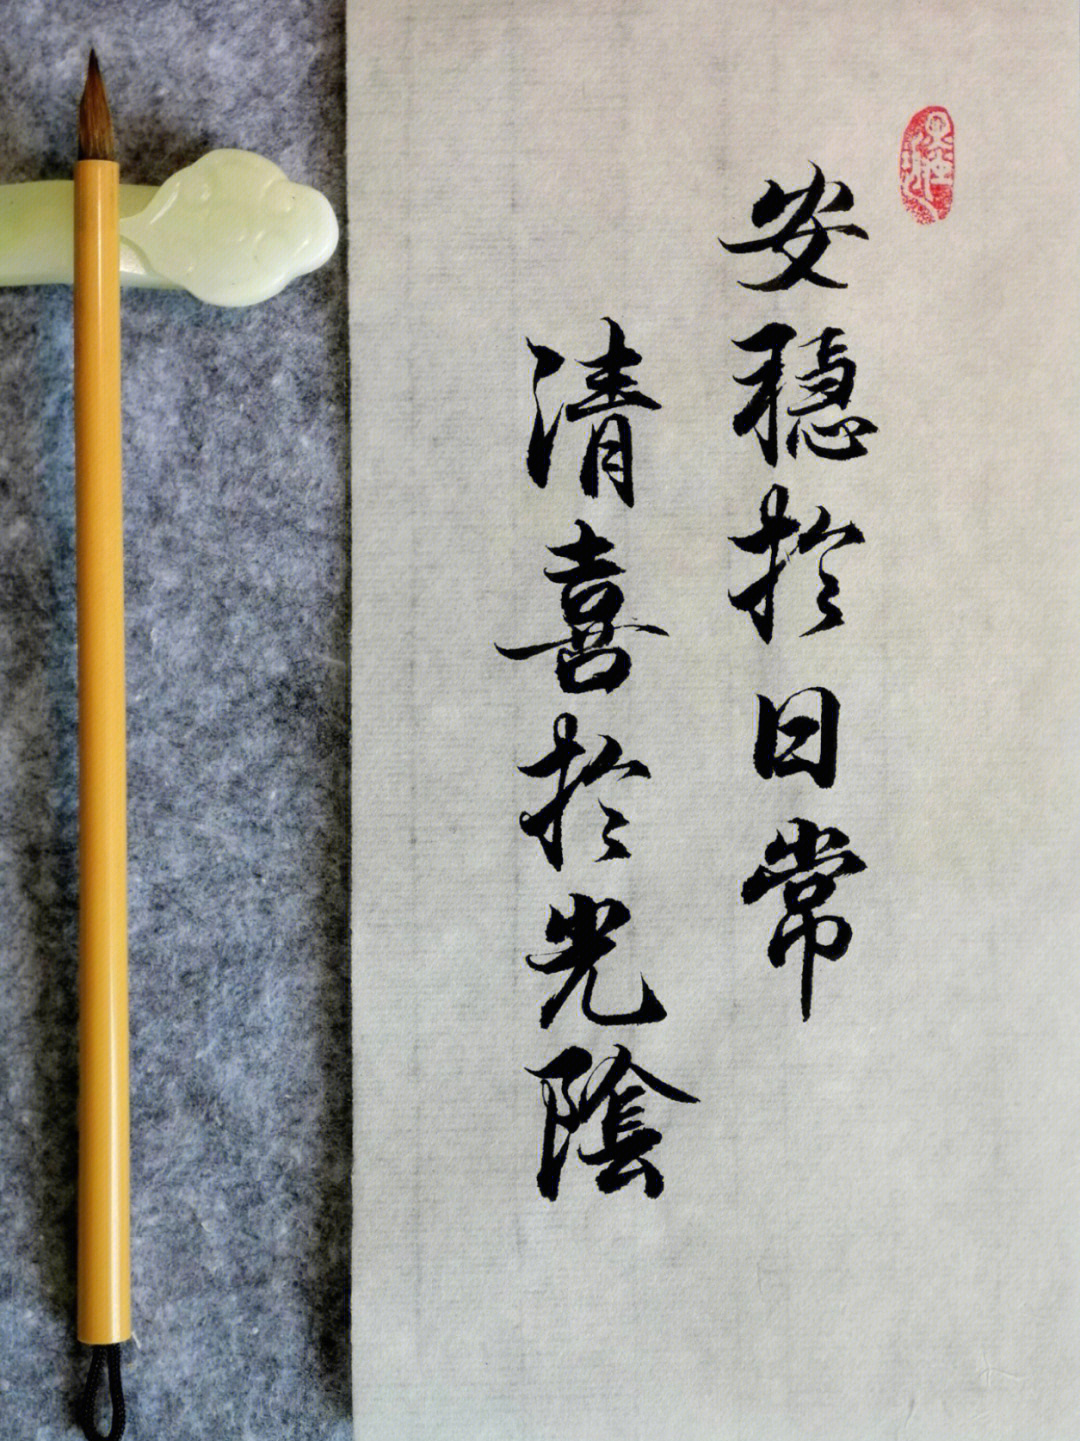 安穏於日常
清喜於光陰